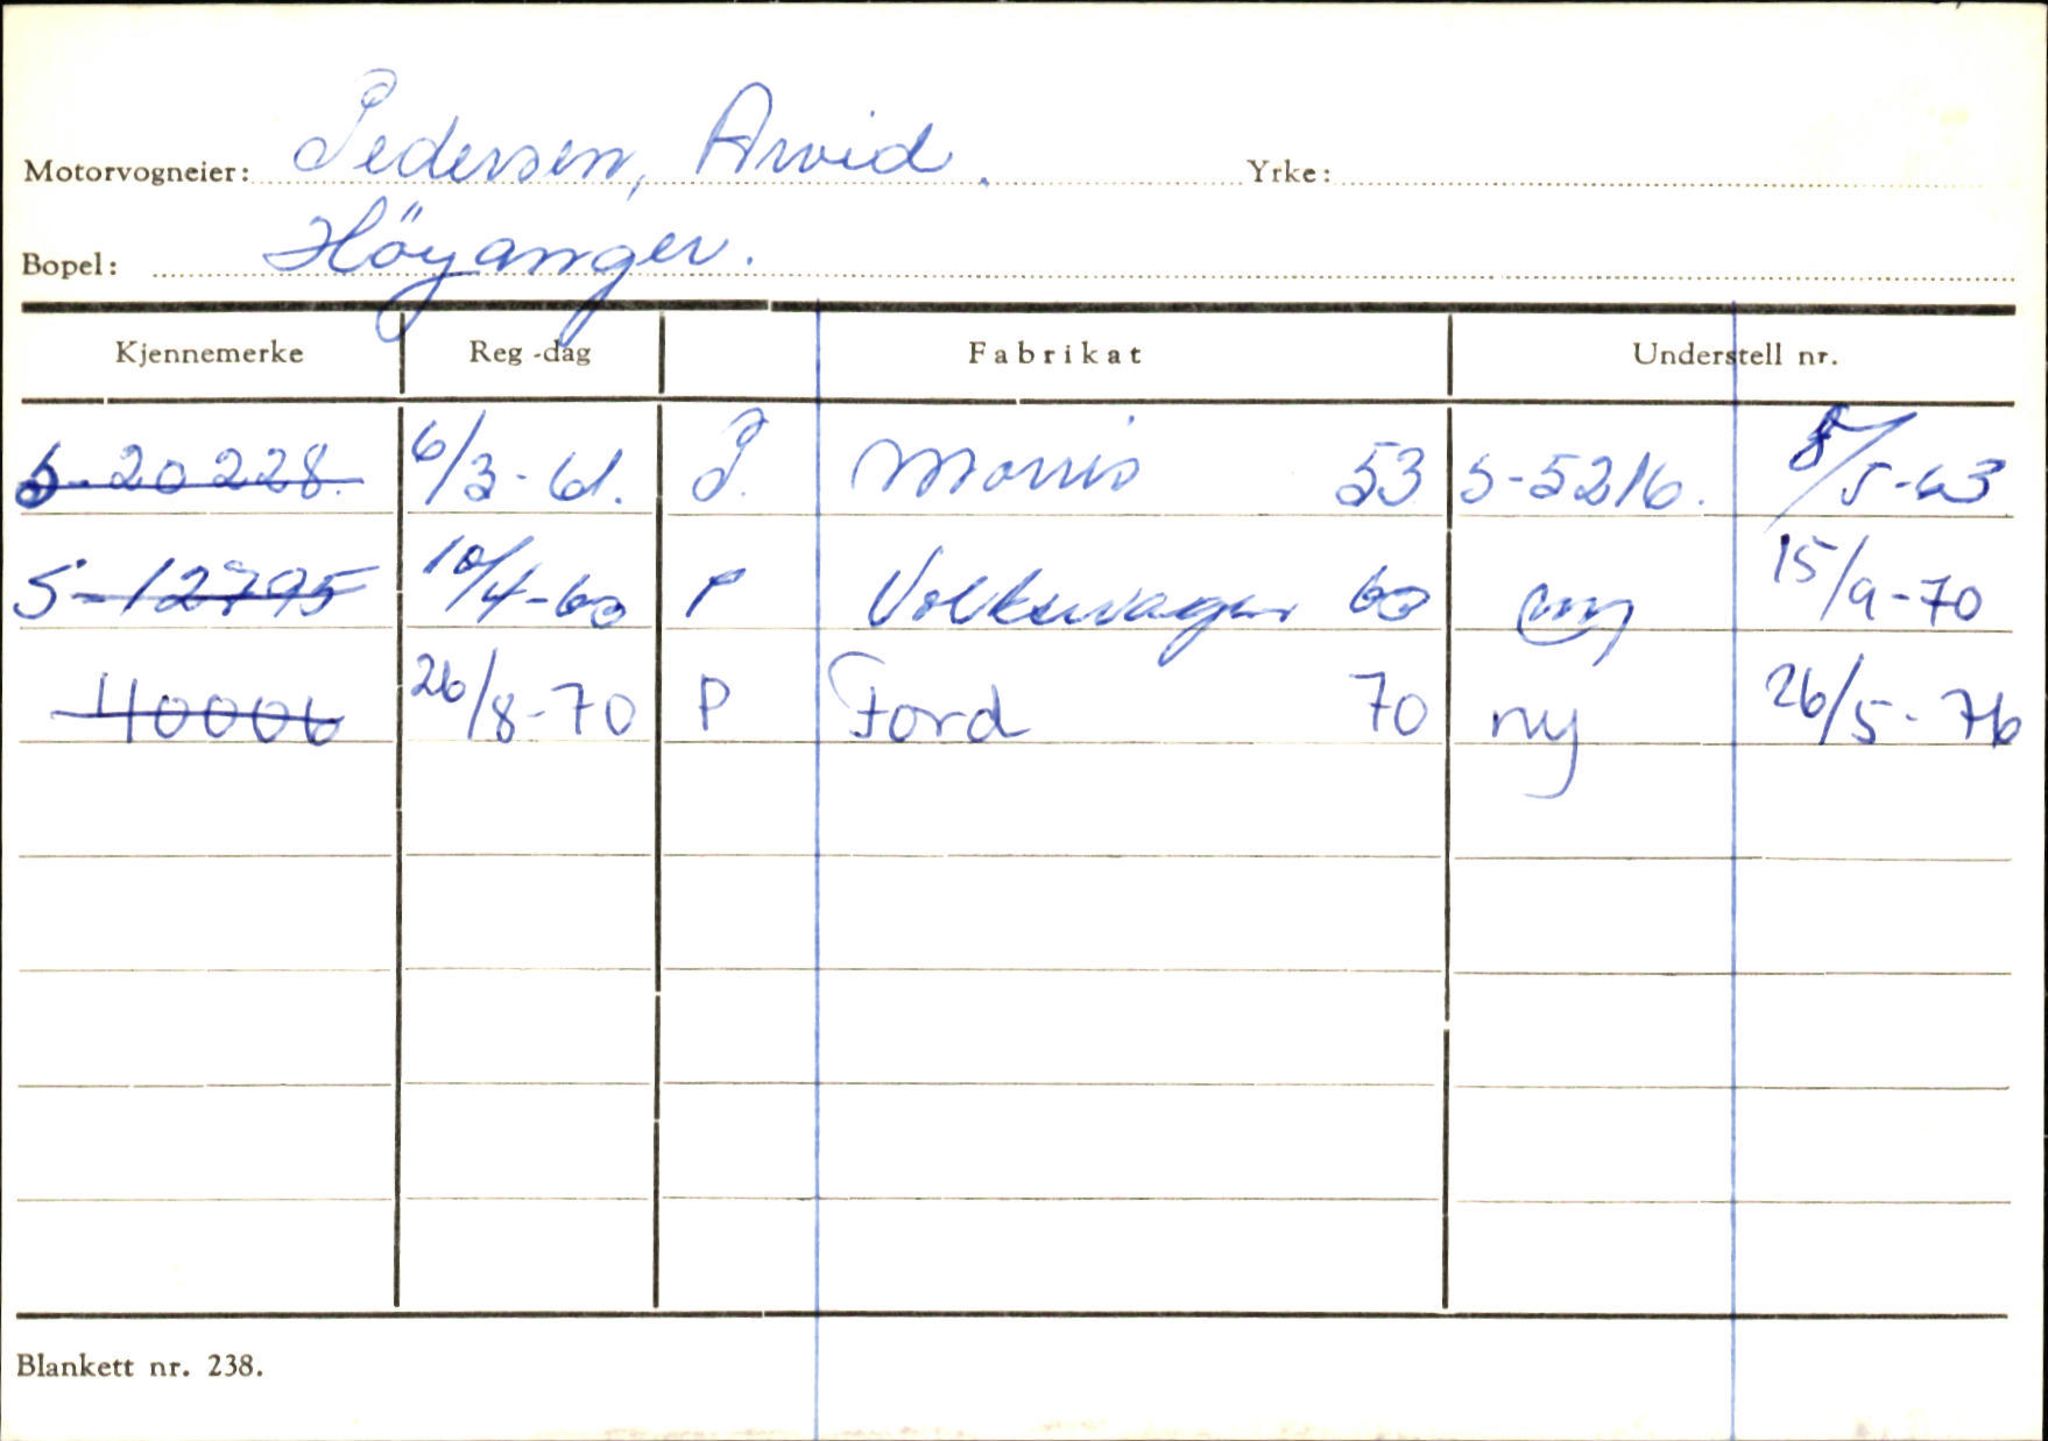 Motorvogneier: Pedersen, Arvid. Yrke:
Bopel: Höyanger.
Kjennemerke Reg-dag Fabrikat Understell nr.
S-20228. 6/3-61. P. Morris 53 S-5216. 8/5-63
S-12795 10/4-60 P Volkswagen 60 15/9-70
40006 26/8-70 P Ford 70 ny 26/5-76
Blankett nr. 238.